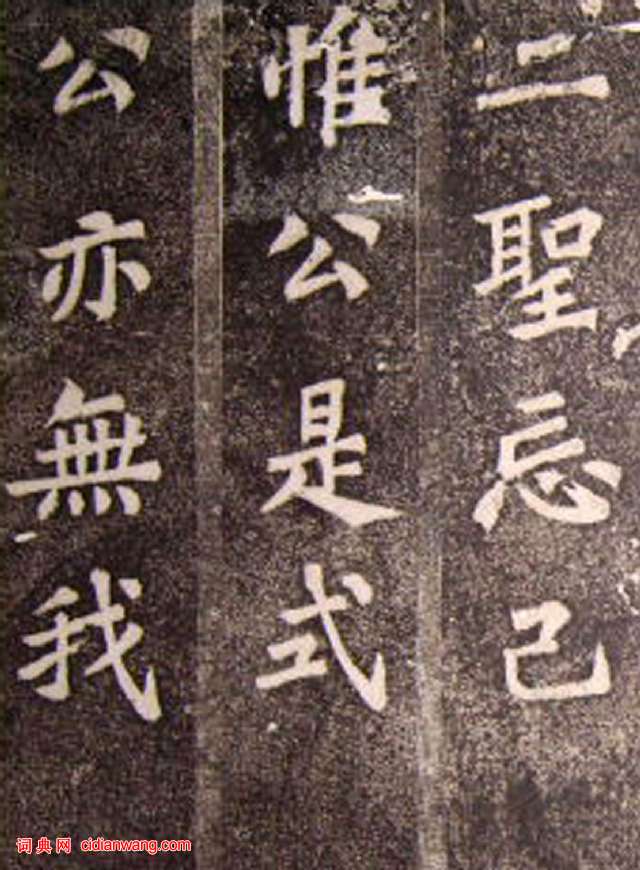 二聖忘己
惟公是式
公亦無我
词典网 cidianwang.com